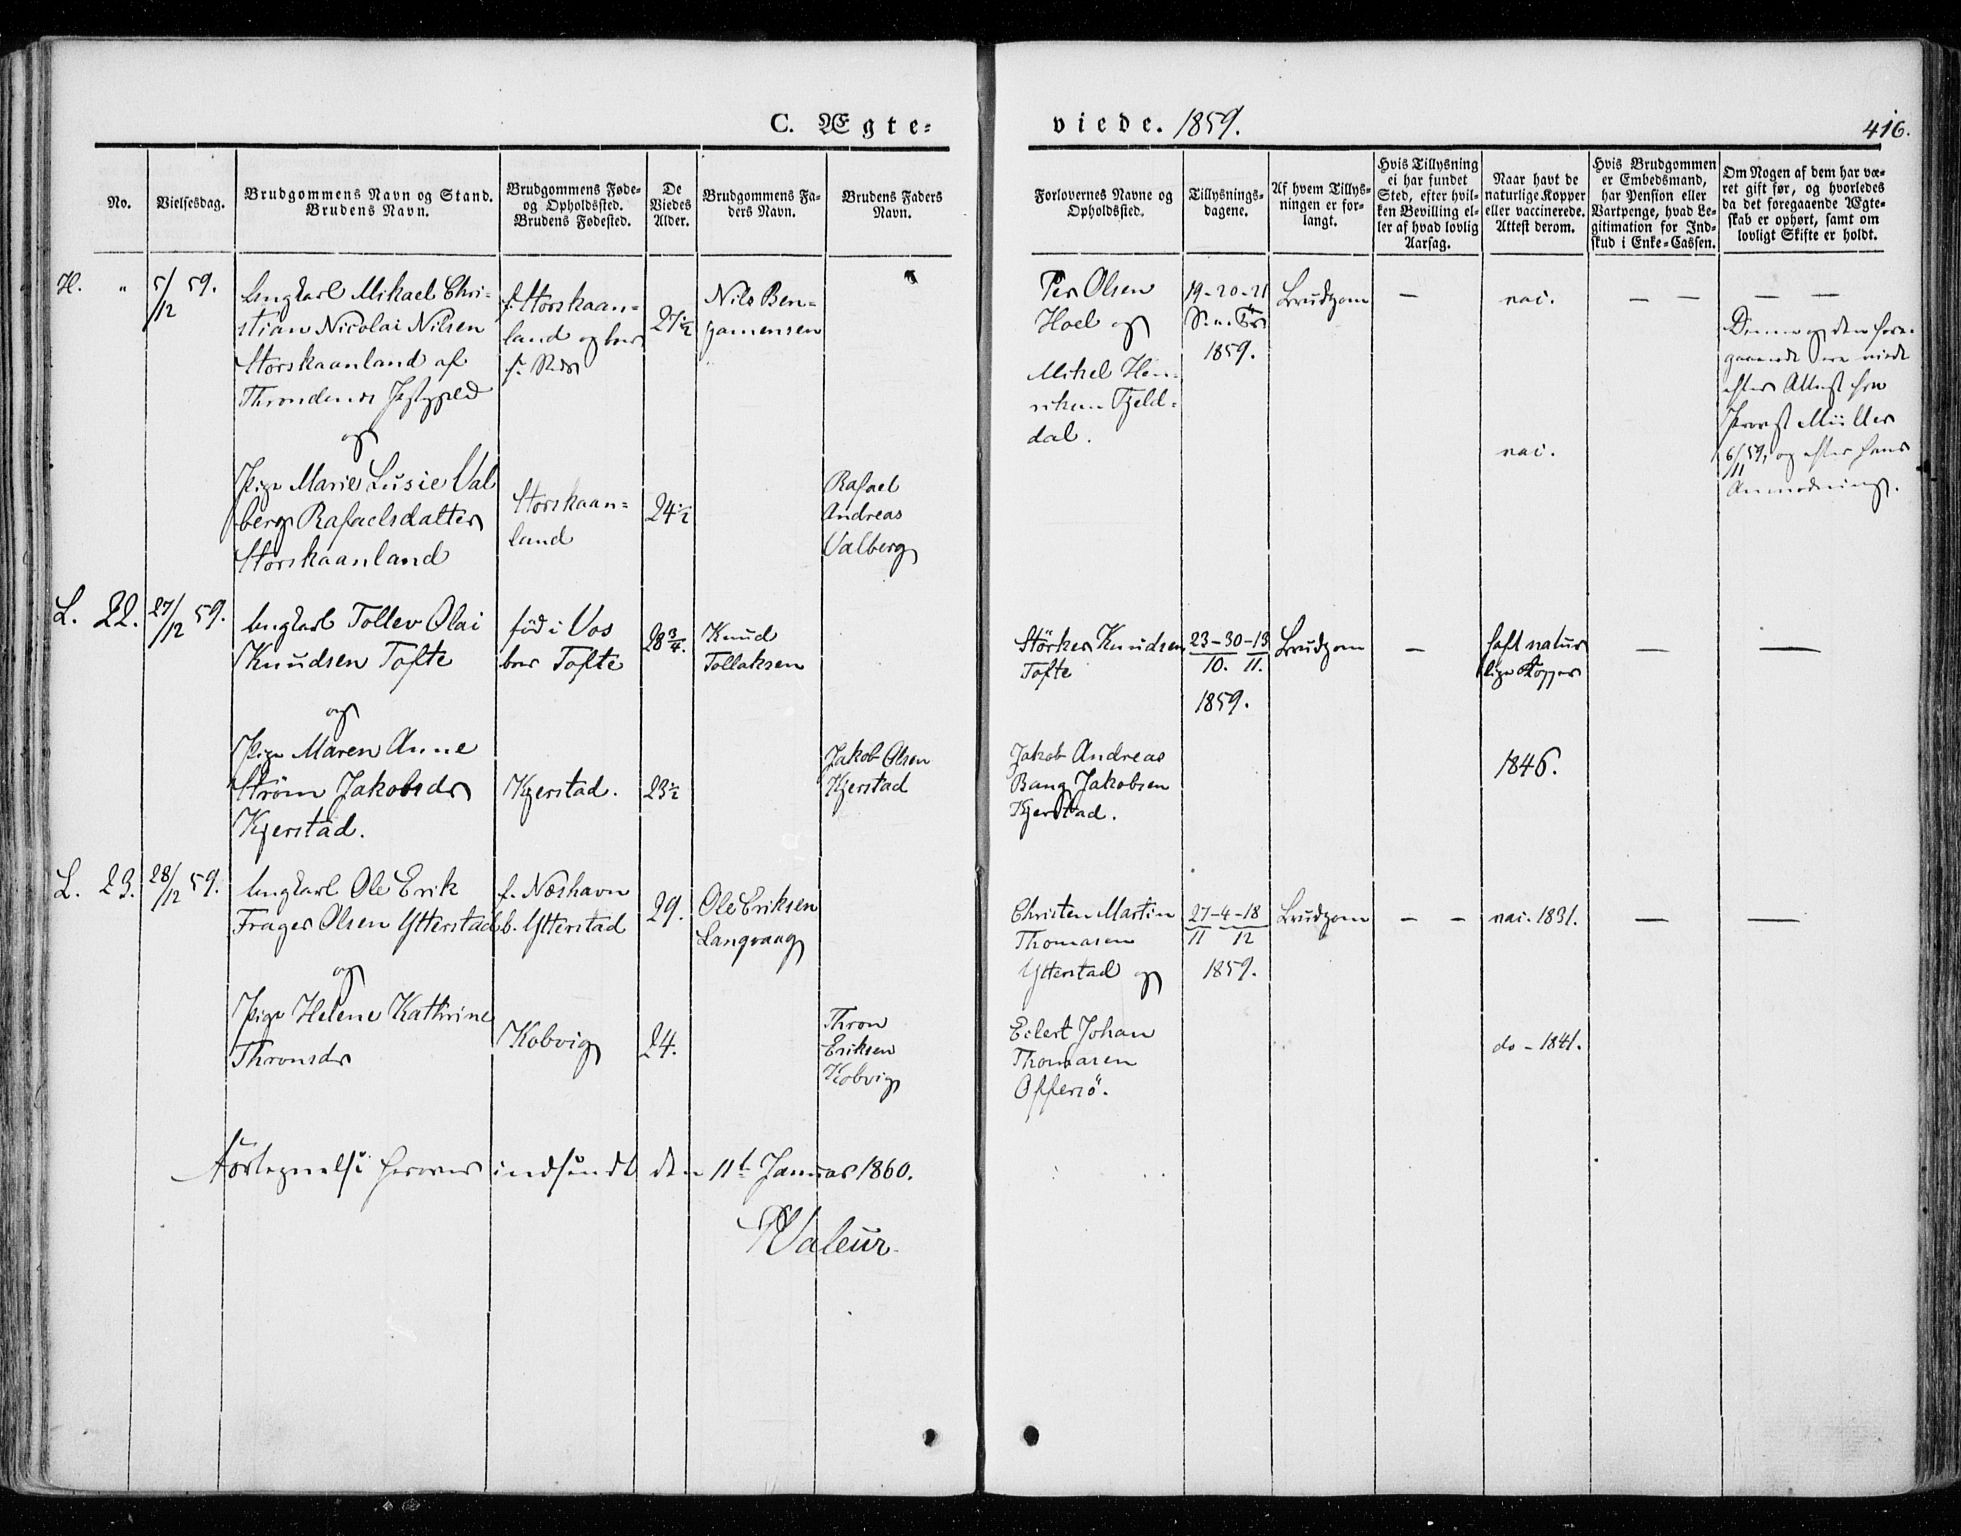 C. Ægte-
viede. 1859.
416.
No.
Vielsesdag.
Brudgommens Navn og Stand.
Brudens Navn.
Brudgommens Føde-
og Opholdssted.
Brudens Fødested.
De
Viedes
Alder.
Brudgommens Fa-
ders Navn.
Brudens Faders
Navn.
Forlovernes Navne og
Opholdssted.
Tillysnings-
dagene.
Af hvem Tillys-
ningen er for-
langt.
Hvis Tillysning
ei har fundet
Sted, efter hvil-
ken Bevilling el-
ler af hvad lovlig
Aarsag.
Naar havt de
naturlige Kopper
eller vaccinerede.
Attest derom.
Hvis Brudgommen
er Embedsmand,
har Pension eller
Vartpenge, hvad Le-
gitimation for Ind-
skud i Enke-Cassen.
Om Nogen af dem har væ-
ret gift før, og hvorledes
da det foregaaende Ægte-
skab er ophørt, samt om
lovligt Skifte er holdt.
H. " 5/12 59.
Ungkarl Mikael Chri-
stian Nicolai Nilsen
Storskaanland af
Throndenes
og
Pige Marie Lusie Val
berg Rafaelsdatter
Storskaanland
f. Storskaan-
land og boer
Storskaan-
land
27 1/2
24 1/2
Nils Ben-
jamensen
Rafael
Andreas
Valberg
Per Olsen
Hoel og
Mikel Hen-
riksen Fjeld-
dal.
19-20-21
1859.
Brudgom
—
vac.
vac.
— —
— —
Denne og den fore-
gaaende ere viede
efter Attest fra
Provst Müller
6/11 59, og efter hans
Anmodning.
L. 22. 27/12 59.
Ungkarl Tollev Olai
Knudsen Tofte
og
Pige Maren Anne
Strøm Jakobsdr
Kjerstad.
fød i Vos
boer Tofte
Kjerstad.
28 3/4.
23 1/2
Knud
Tollaksen
Jakob Olsen
Kjerstad
Störker Knudsen
Tofte
Jakob Andreas
Bang Jakobsen
Kjerstad.
23-30-13
10. 11.
1859.
Brudgom
—
haft natur
lige Kopper
1846.
—
—
L. 23. 28/12 59.
Ungkarl Ole Erik
Frager Olsen Ytterstad
og
Pige Helene Kathrine
Thronsdr
f. Næshavn
b. Ytterstad
Kobvig
29.
24.
Ole Eriksen
Langvaag
Thron
Eriksen
Kobvig
Christen Martin
Thomasen
Ytterstad og
Eilert Johan
Thomasen
Offersö.
27-4-18
11 12
1859.
Brudgom
— —
vac. 1831.
do - 1841.
—
—
Fortegnelse herover indsendt den 11te Januar 1860.
Valeur.